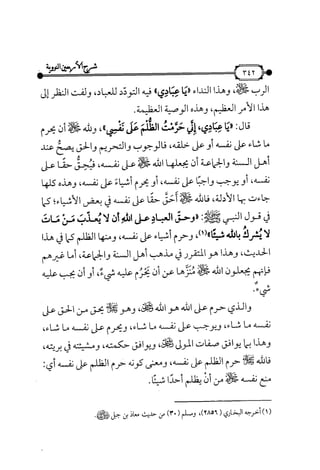 شرح الأربعين النووية
٣٤٢
الرب ﷻ، وهذا النداء «يَا عِبَادِي» فيه التودّد للعباد، ولفت النظر إلى
هذا الأمر العظيم، وهذه الوصية العظيمة.
قال: «يَا عِبَادِي، إِنِّي حَرَّمْتُ الظُّلْمَ عَلَى نَفْسِي»، ولله ﷻ أن يحرم
ما شاء على نفسه أو على خلقه، فالوجوب والتحريم والحق يصح عند
أهل السنة والجماعة أن يجعلها الله ﷻ على نفسه، فيُحِقُّ حقًا على
نفسه، أو يوجب واجبًا على نفسه، أو يحرم أشياءً على نفسه، وهذه كلها
جاءت بها الأدلة، فالله ﷻ أَحَقَّ حقًا على نفسه في بعض الأشياء؛ كما
في قول النبي ﷺ: «وحق العباد على الله أن لا يُعذِّبَ مَنْ مَاتَ
لا يُشركُ بالله شيئًا»(١)، وحرم أشياء على نفسه، ومنها الظلم كما في هذا
الحديث، وهذا هو المتقرر في مذهب أهل السنة والجماعة، أما غيرهم
فإنهم يجعلون الله ﷻ مُنزَّهًا عن أن يَحْرُم عليه شيءٌ، أو أن يجب عليه
شيءٌ.
والذي حرم على الله هو الله ﷻ، وهو ﷻ يحق من الحق على
نفسه ما شاء، ويوجب على نفسه ما شاء، ويحرم على نفسه ما شاء،
وهذا بما يوافق صفات المولى ﷻ، ويوافق حكمته، ومشيئته في بريته،
فالله ﷻ حرم الظلم على نفسه، ومعنى كونه حرم الظلم على نفسه أي:
منع نفسه ﷻ من أنْ يظلم أحدًا شيئًا.
(١) أخرجه البخاري (٢٨٥٦)، ومسلم (٣٠) من حديث معاذ بن جبل ﵁.